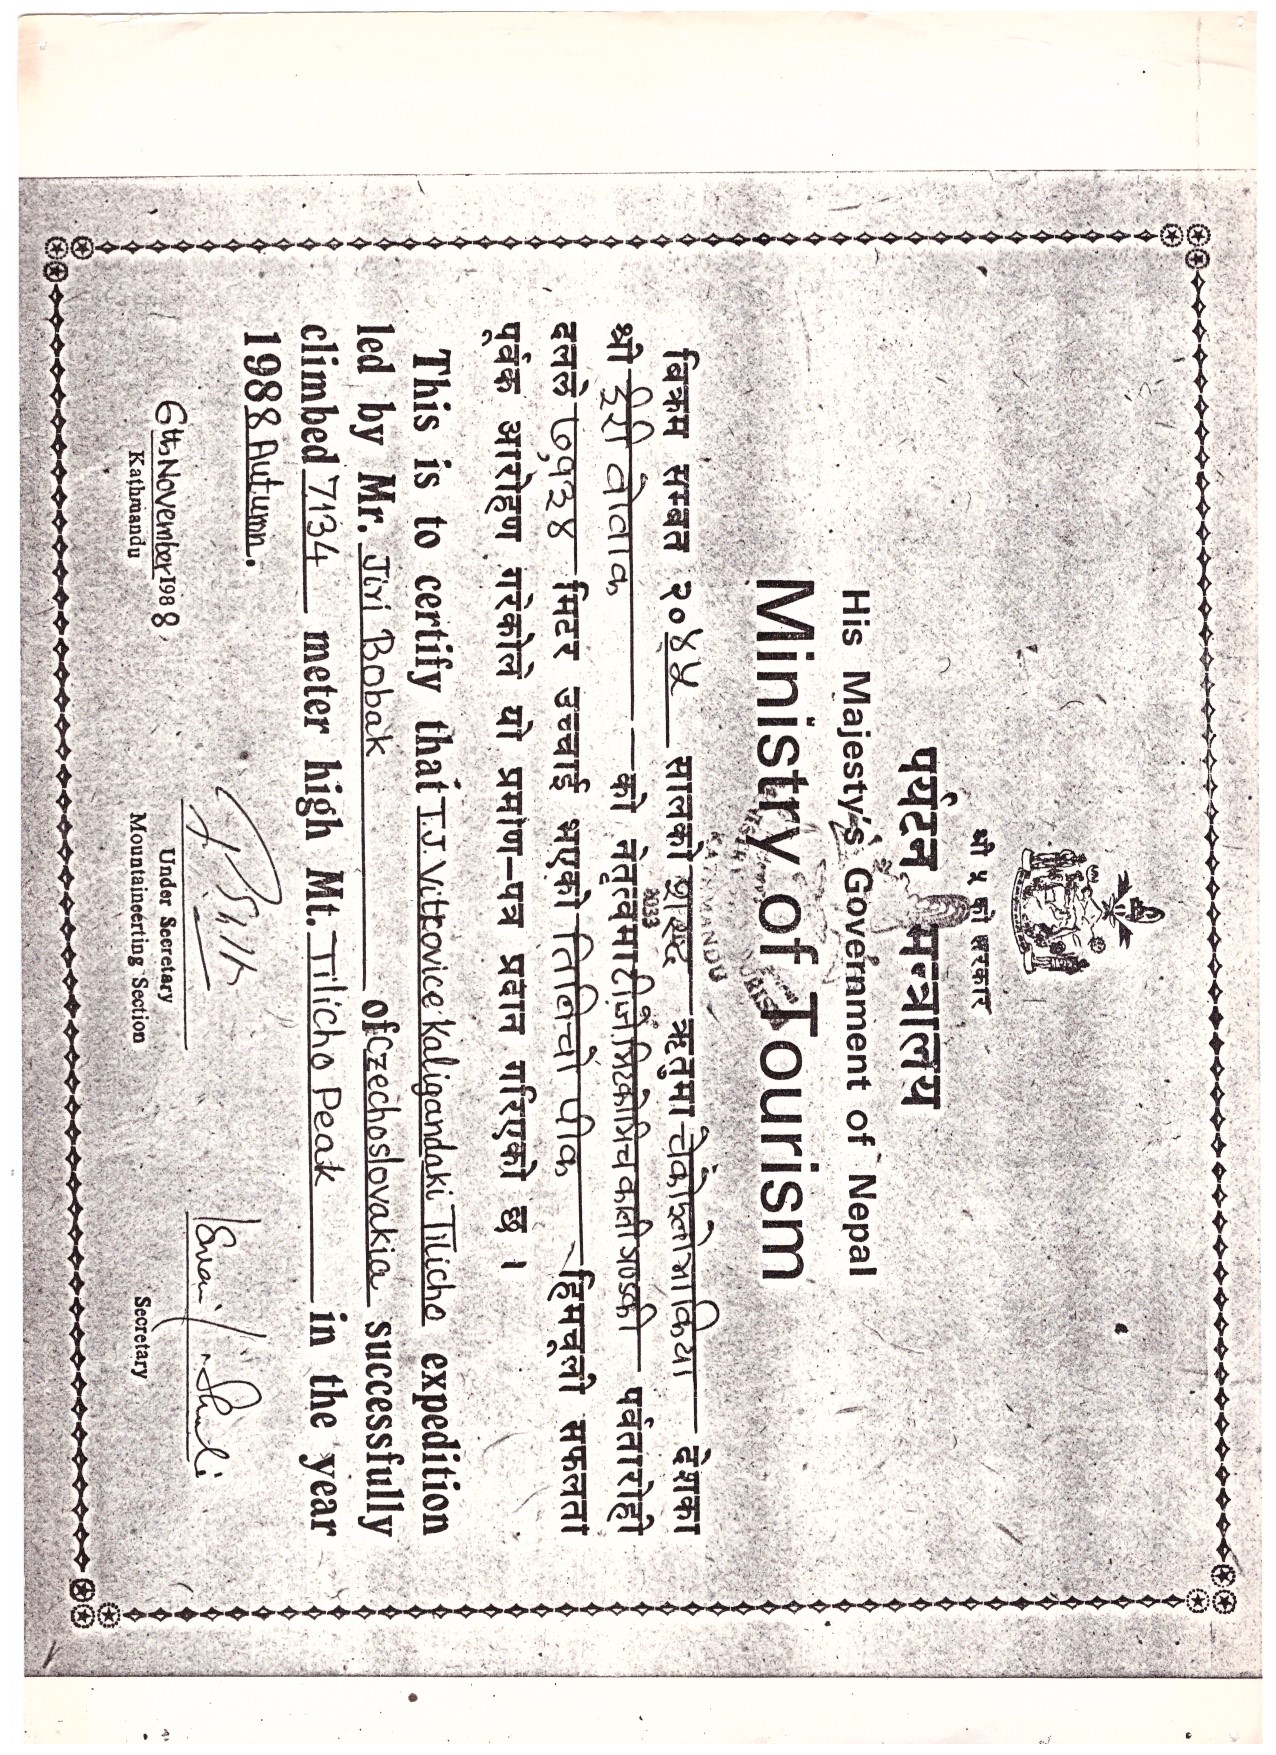 श्री ५ को सरकार
पर्यटन मन्त्रालय
His Majesty's Government of Nepal
Ministry of Tourism
MINISTRY TOURISM
KATHMANDU
2033
बिक्रम सम्बत २०४५ सालको शरद ऋतुमा चेकोस्लोभाकिया देशका
श्री ईरी वोवाक को नेतृत्वमा टी.जे.भिटकोभिच काली गण्डकी पर्वतारोही
दलले ७,१३४ मिटर उच्चाई भएको तिलिचो पीक हिमचूली सफलता
पूर्वक आरोहण गरेकोले यो प्रमाण-पत्र प्रदान गरिएको छ ।
This is to certify that T.J. Vitkovice Kaligandaki Tilicho expedition
led by Mr. Jiri Bobak of Czechoslovakia successfully
climbed 7134 meter high Mt. Tilicho Peak in the year
1988 Autumn.
6th November 1988
Kathmandu
Under Secretary
Mountaineerting Section
Secretary